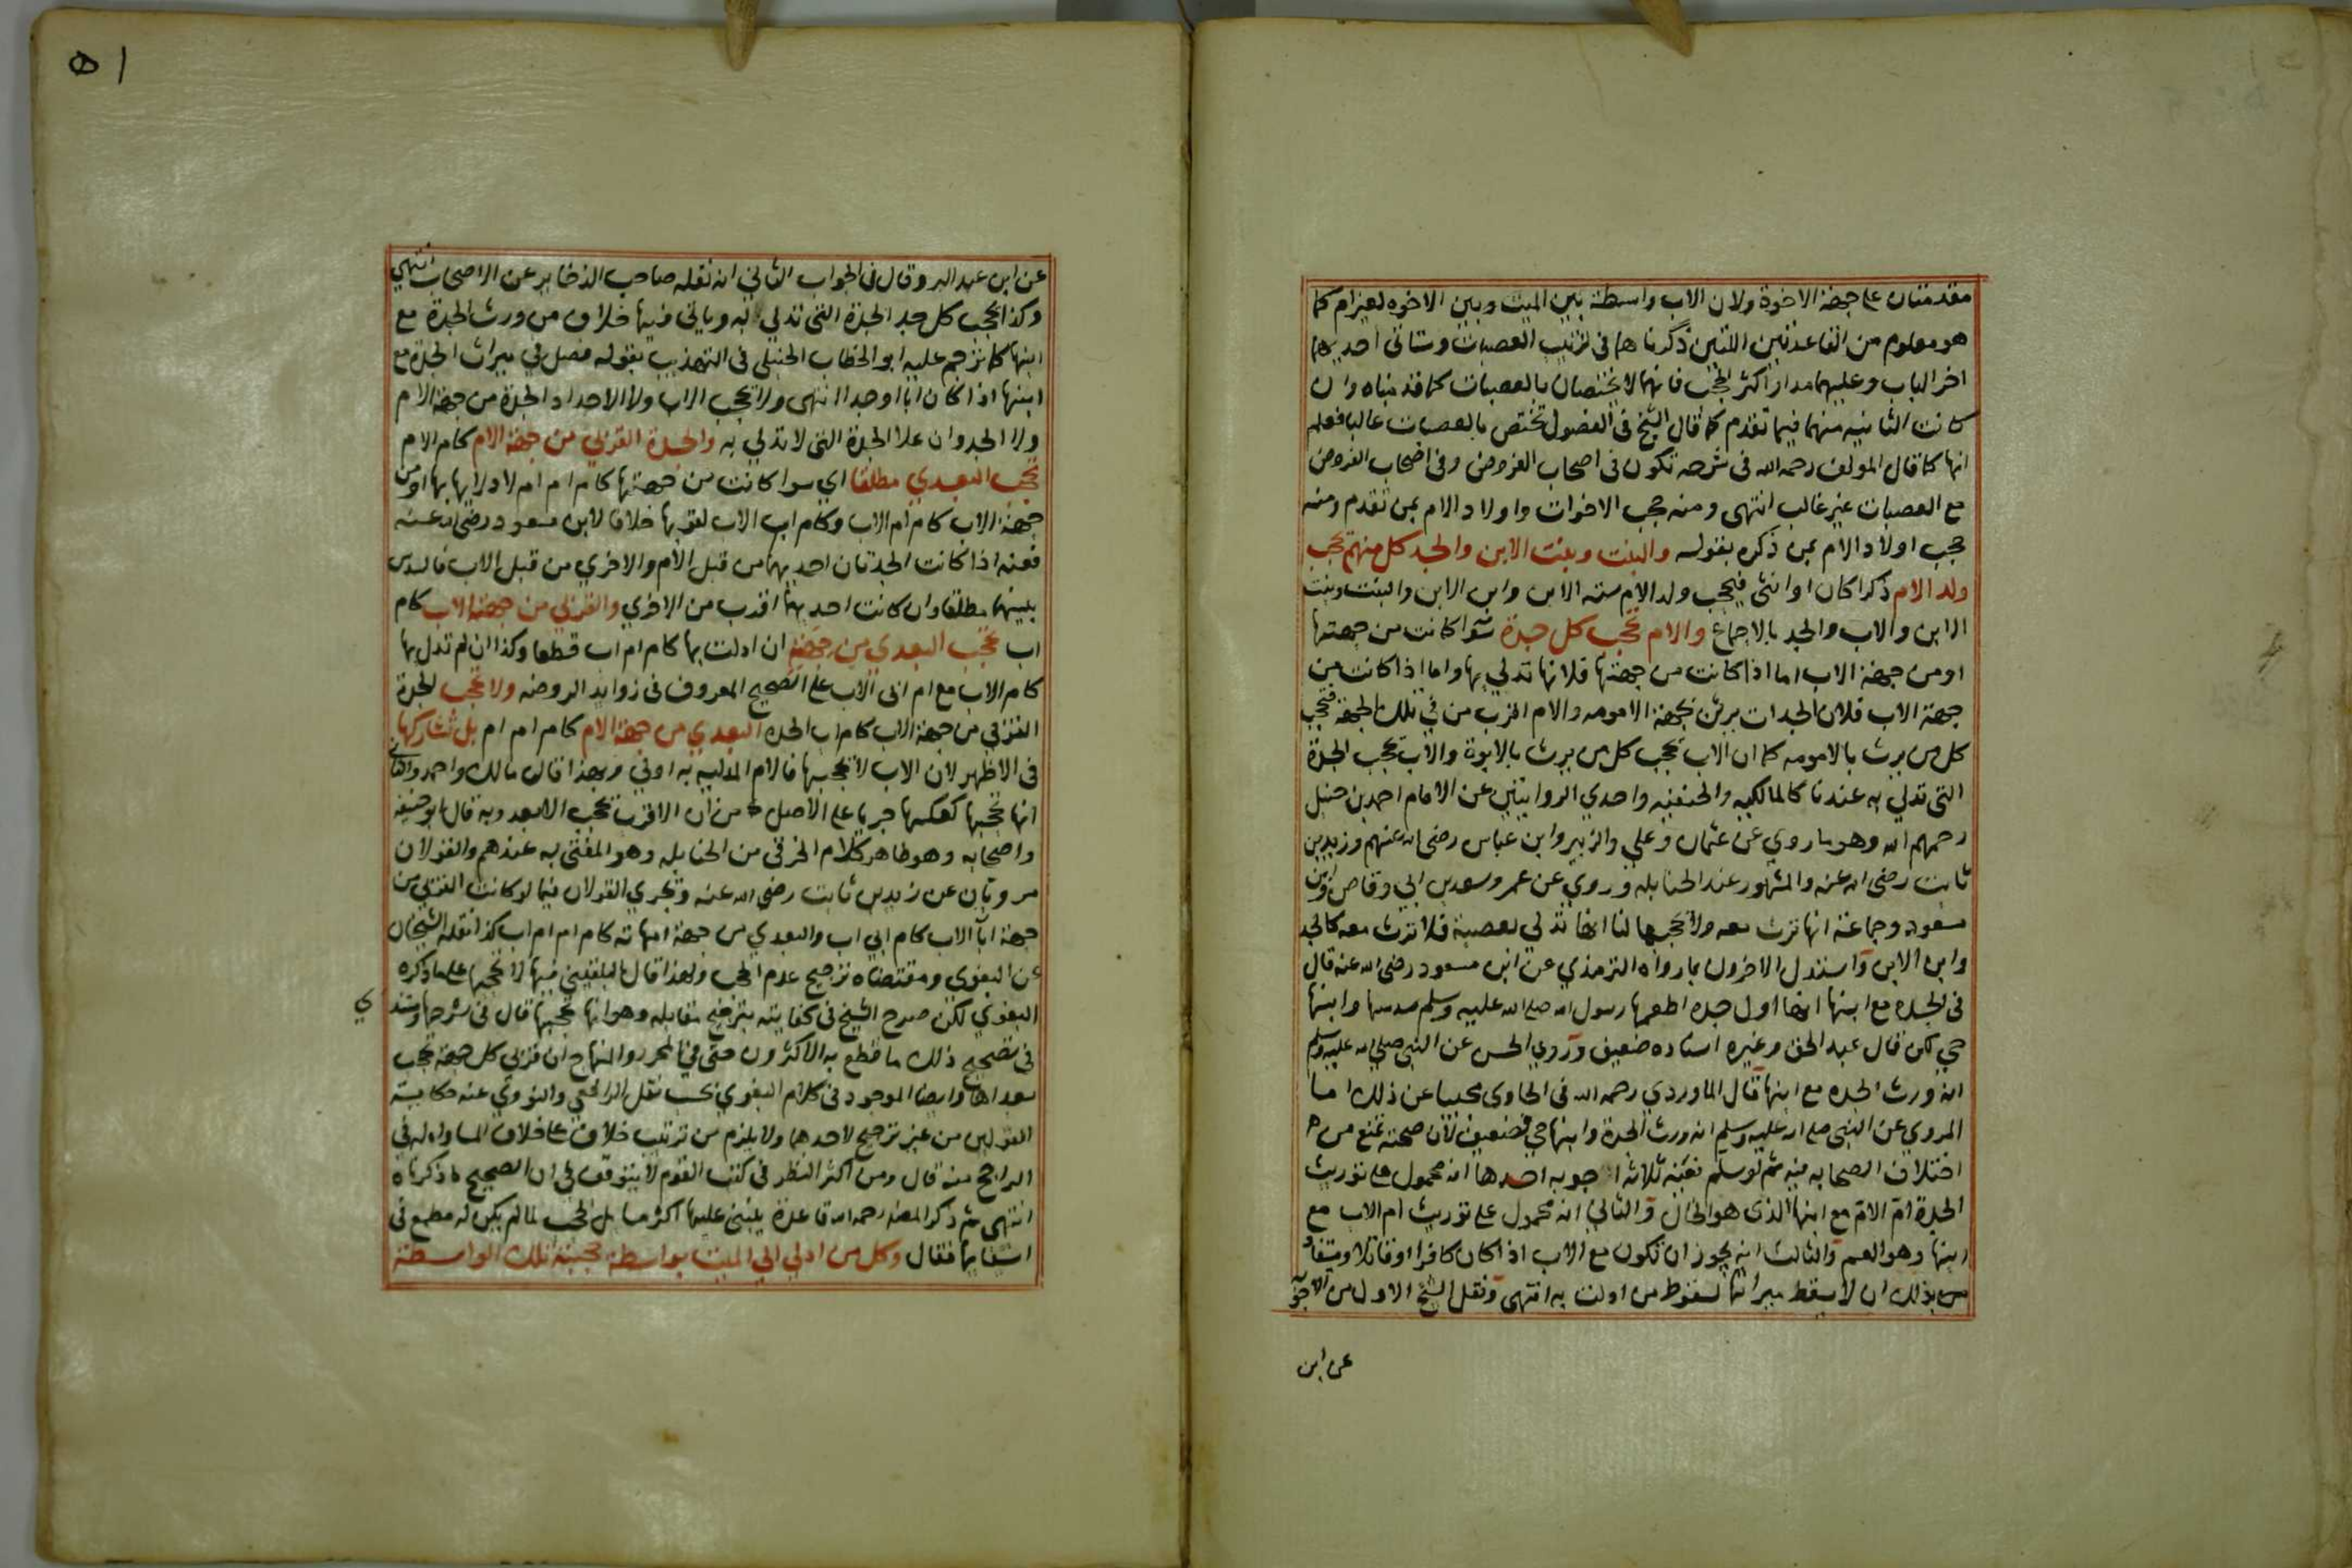 مقدمتان على جهة الاخوة ولان الاب واسطة بين الميت وبين الاخوه لغير ام كما
هو معلوم من القاعدتين اللتين ذكرناهما في ترتيب العصبات وستاتي احديهما
اخر الباب وعليهما مدار اكثر الحجب فانهما لا يختصان بالعصبات كما قدمناه وان
كانت الثانيه منهما فيما تقدم كما قال الشيخ في الفصول تختص بالعصبات غالبا فعلم
انها كما قال المولف رحمه الله في شرحه تكون في اصحاب الفروض وفي اصحاب الفروض
مع العصبات غير غالب انتهى ومنه حجب الاخوات واولاد الام بمن تقدم ومنه
حجب اولاد الام بمن ذكره بقوله والبنت وبنت الابن والجد كل منهم تحجب
ولد الام ذكرا كان او انثى فيحجب ولد الام سته الابن وابن الابن والبنت وبنت
الابن والاب والجد بالاجماع والام تحجب كل جدة سوا كانت من جهتها
او من جهة الاب اما اذا كانت من جهتها فلانها تدلي بها واما اذا كانت من
جهة الاب فلان الجدات يرثن بجهة الامومه والام اقرب من في تلك الجهة فتحجب
كل من يرث بالامومه كما ان الاب يحجب كل من يرث بالابوة والاب يحجب الجدة
التي تدلي به عندنا كالمالكيه والحنفيه واحدي الروايتين عن الامام احمد بن حنبل
رحمهم الله وهو ما روي عن عثمان وعلي والزبير وابن عباس رضي الله عنهم وزيد بن
ثابت رضي الله عنه والمشهور عند الحنابله وروي عن عمر وسعد بن ابي وقاص وابن
مسعود وجماعة انها ترث معه ولا يحجبها لنا انها تدلي بعصبة فلا ترث معه كالجد
وابن الابن واستدل الاخرون بما رواه الترمذي عن ابن مسعود رضي الله عنه قال
في الجده مع ابنها انها اول جده اطعمها رسول الله صلى الله عليه وسلم سدسها وابنها
حي لكن قال عبد الحق وغيره اسناده ضعيف وروي الحسن عن النبي صلى الله عليه وسلم
انه ورث الجده مع ابنها قال الماوردي رحمه الله في الحاوي مجيبا عن ذلك اما
المروي عن النبي صلى الله عليه وسلم انه ورث الجدة وابنها حي فضعيف لان صحته تمنع من
اختلاف الصحابه فيه ثم لو سلم فعنه ثلاثة اجوبه احدها انه محمول على توريث
الجدة ام الام مع ابنها الذي هو الخال والثاني انه محمول على توريث ام الاب مع
ابنها وهو العم والثالث انه يجوز ان تكون مع الاب اذا كان كافرا او قاتلا ويستفاد
من بذلك ان لا يسقط ميراثها لسقوط من ادلت به انتهى ونقل الشيخ الاول من الاجوبة
عن ابن
٥١
عن ابن عبد البر وقال في الجواب الثاني انه نقله صاحب الذخاير عن الاصحاب انتهي
وكذا يحجب كل جد الجدة التي تدلي به وياتي فيها خلاف من ورث الجدة مع
ابنها كما ترجم عليه ابو الخطاب الحنبلي في التهذيب بقوله فصل في ميراث الجدة مع
ابنها اذا كان ابا او جدا انتهى ولا يحجب الاب ولا الاجداد الجدة من جهة الام
ولا الجد وان علا الجدة التي لا تدلي به والجدة القربي من جهة الام كام الام
تحجب البعدي مطلقا اي سوا كانت من جهتها كام ام ام لادلايها بها او من
جهة الاب كام ام الاب وكام اب الاب لقربها خلافا لابن مسعود رضي الله عنه
فعنه اذا كانت الجدتان احديهما من قبل الام والاخري من قبل الاب فالسدس
بينهما مطلقا وان كانت احديهما اقرب من الاخري والقربي من جهة الاب كام
اب تحجب البعدي من جهته ان ادلت بها كام ام اب قطعا وكذا ان لم تدل بها
كام الاب مع ام ابي الاب على الصحيح المعروف في زوايد الروضه ولا تحجب الجدة
القربي من جهة الاب كام اب الجده البعدي من جهة الام كام ام ام بل تشاركها
في الاظهر لان الاب لا يحجبها فالام المدليه به اولي وبهذا قال مالك واحمد والثاني
انها تحجبها كعكسها جريا على الاصل من ان الاقرب يحجب الابعد وبه قال ابو حنيفه
واصحابه وهو ظاهر كلام الخرقي من الحنابله وهو المفتى به عندهم والقولان
مرويان عن زيد بن ثابت رضي الله عنه وتجري القولان فيما لو كانت القربي من
جهة ابا الاب كام ابي اب والبعدي من جهة امهاته كام ام ام اب كذا نقله الشيخان
عن البغوي ومقتضاه ترجيح عدم الحجب ولهذا قال البلقيني فيها لا تحجبها على ما ذكره
البغوي لكن صرح الشيخ في كفايته بترجيح مقابله وهو انها تحجبها قال في شرحها ومستندي
في تصحيح ذلك ما قطع به الاكثرون حتى في المحرر والمنهاج ان قربي كل جهة تحجب
بعداها وايضا الموجود في كلام البغوي بحسب نقل الرافعي والنووي عنه حكاية
القولين من غير ترجيح لاحدهما ولا يلزم من ترتيب خلاف على خلاف المساواه له في
الراجح منه قال ومن اكثر النظر في كتب القوم لا يتوقف في ان الصحيح ما ذكرناه
انتهى ثم ذكر المصنف رحمه الله قاعدة ينبني عليها اكثر مسايل الحجب لما لم يكن له مطمع في
استيفايها فقال وكل من ادلي الي الميت بواسطة حجبته تلك الواسطة